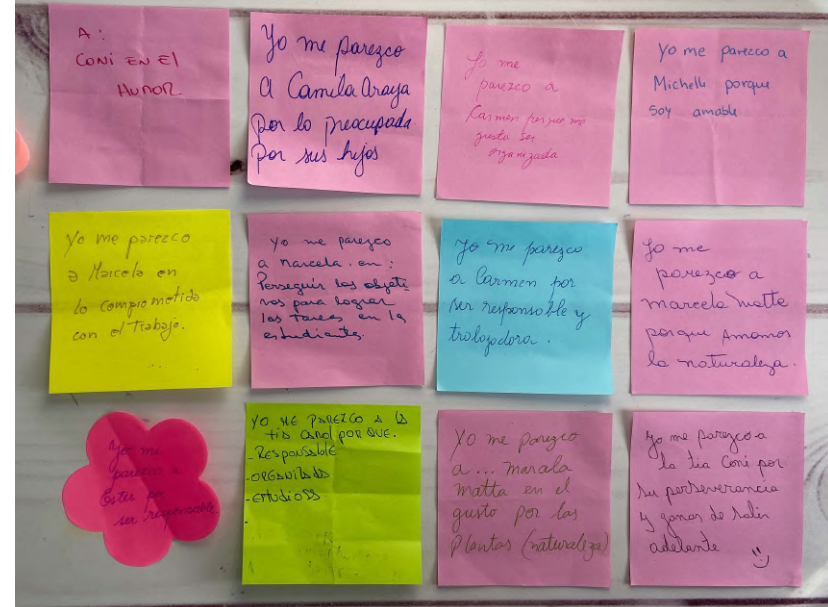 A:
CONI EN El
HUMOR
Yo me parezco
A Camila Araya
por lo preocupada
por sus hijos
Yo me
parezco a
Carmen porque me
gusta ser
organizada
Yo me parezco a
Michelle porque
soy amable
Yo me parezco
a Marcela en
lo comprometida
con el trabajo.
Yo me parezco
a Marcela. en:
Perseguir los objeti
vos para lograr
las tareas en la
estudiante.
Yo me parezco
a Carmen por
ser responsable y
trabajadora.
Yo me
parezco a
marcela matta
porque Amamos
la naturaleza.
Yo me
parezco a
Ester por
ser responsable
YO ME PAREZCO A la
tia carol POR QUE.
-RESPONSABLE
-ORGANIZADA
-ESTUDIOSA
Yo me parezco
a... marala
matta en el
gusto por las
plantas (naturaleza)
Yo me parezco a
la tia Coni por
su perseverancia
y ganas de salir
adelante